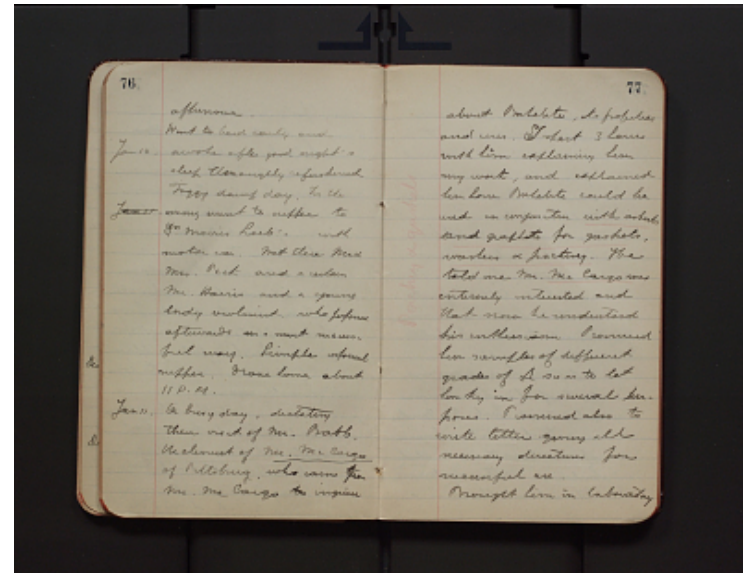 76
afternoon.
Went to bed early and
Jan 10. awoke after good night's
sleep thoroughly refreshed
Foggy damp day. In the
Jan 11 evening went to supper to
Dr Morris Loeb's with
motor car. Met there Mr &
Mrs. Peck and a certain
Mr. Harris and a young
lady violinist who performed
afterwards in a most
ful way. Simple informal
supper. Drove home about
11 P.M.
Jan 11. A busy day, dictating
then visit of Mr. Babb.
the chemist of Mr. McCargo
of Pittsburg, who came from
Mr. McCargo to inquire
77
about Bakelite, its properties
and uses. I spent 3 hours
with him explaining him
my work, and explained
him how Bakelite could be
used in conjunction with asbestos
and graphite for gaskets,
washers & packing. He
told me Mr. McCargo was
intensely interested and
that now he understood
his enthusiasm. Promised
him samples of different
grades of A so as to let
him for several
poses. Promised also to
write letter giving all
necessary directions for
successful use.
Brought him in laboratory